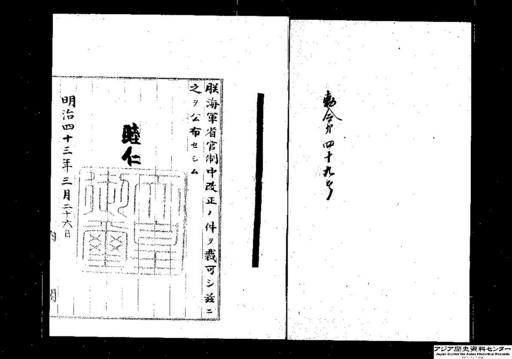 勅令第四十九号
朕海軍省官制中改正ノ件ヲ裁可シ茲ニ
之ヲ公布セシム
睦仁
天皇御璽
明治四十三年三月二十六日
内閣
アジア歴史資料センター
Japan Center for Asian Historical Records